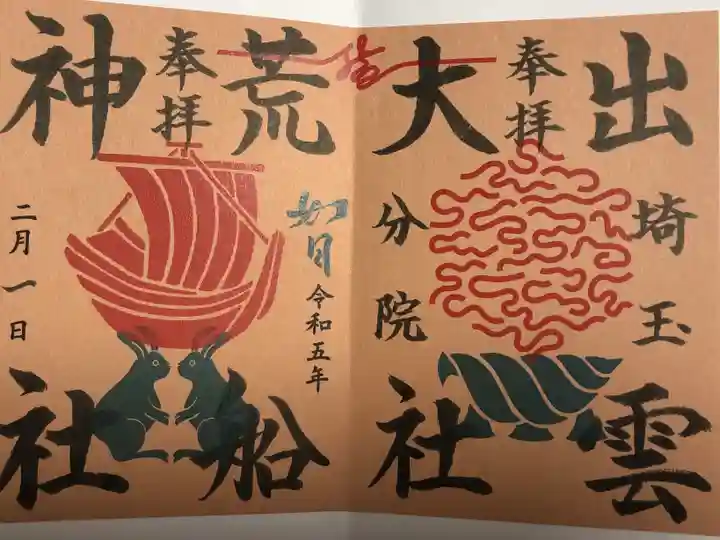 出雲
奉拝
大社
埼玉
分院
荒船
奉拝
神社
如月
令和五年
二月一日